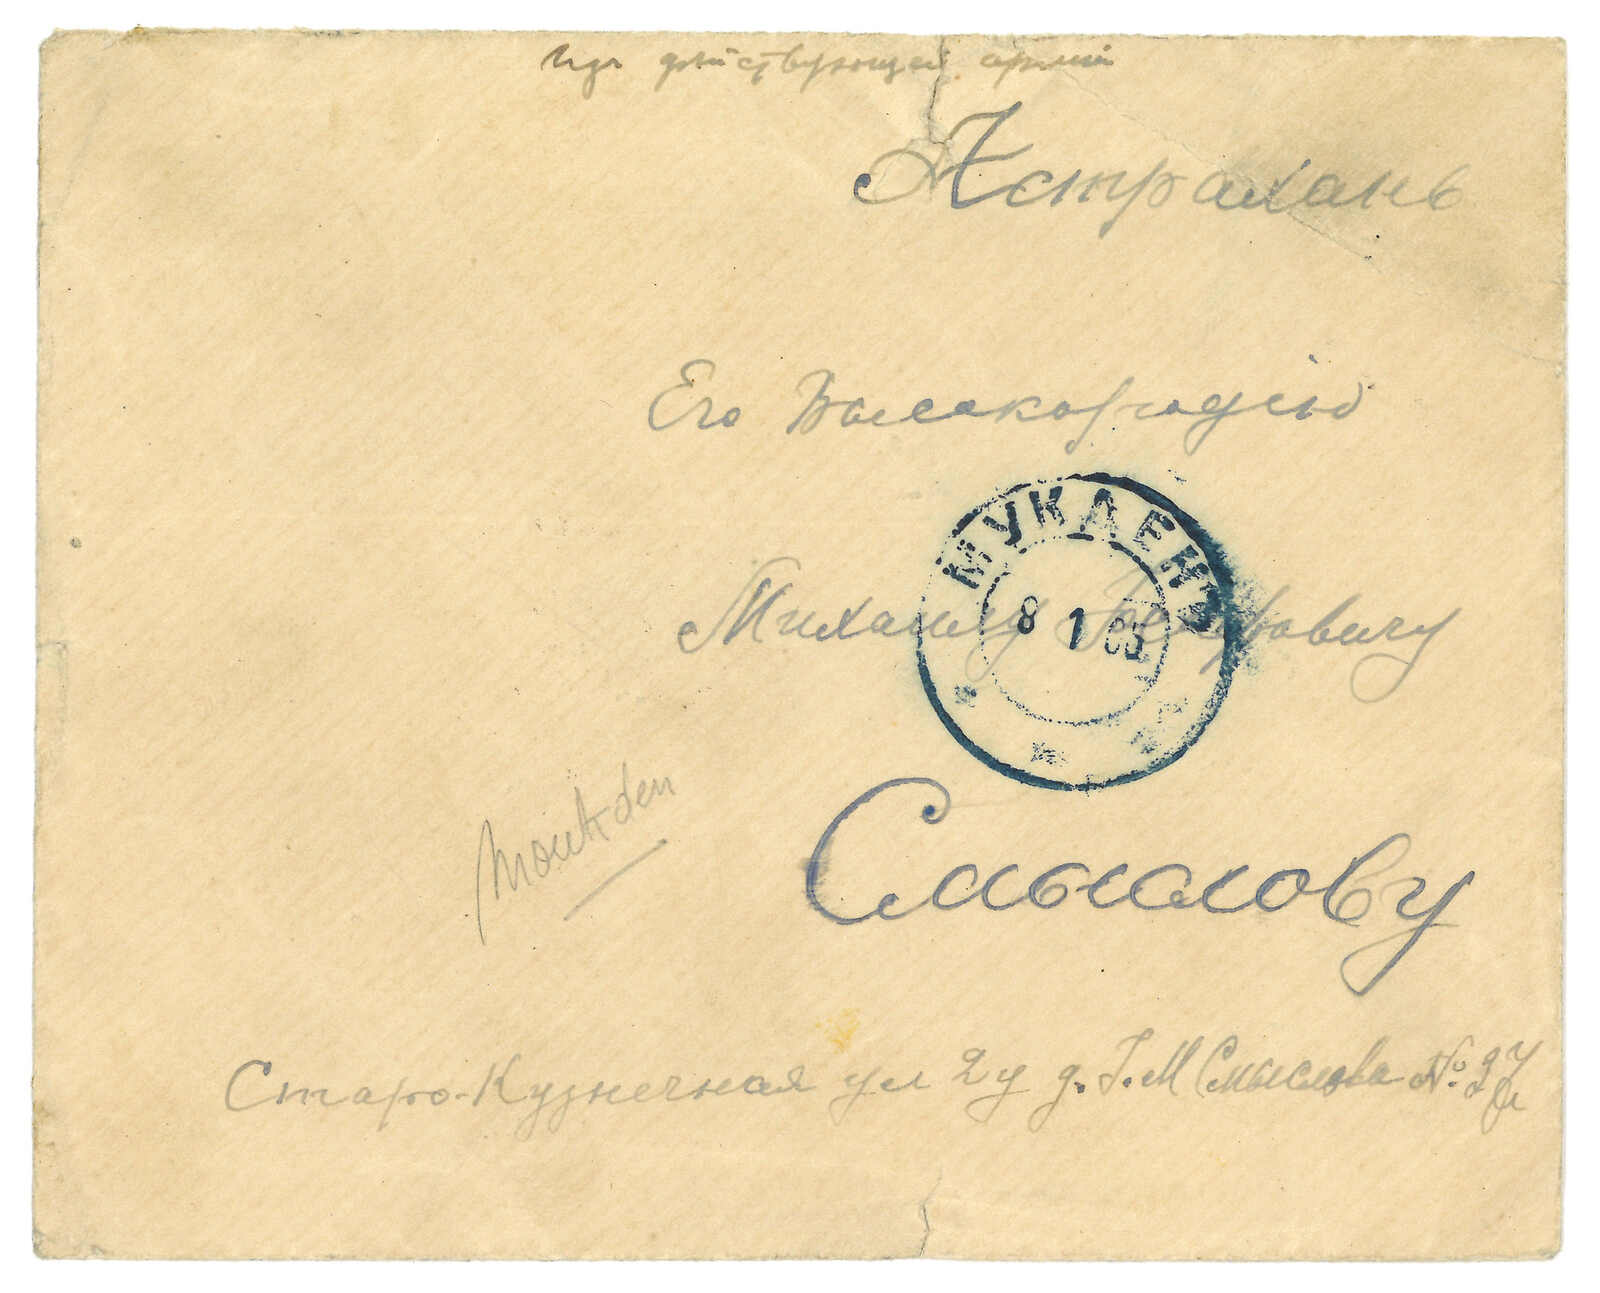 изъ дѣйствующей арміи
Астрахань
Его Высокородію
МУКДЕНЪ
8 1 05
Михаилу Петровичу
Смыслову
Moukden
Старо-Кузнечная ул 2 у д. Г. М Смыслова №